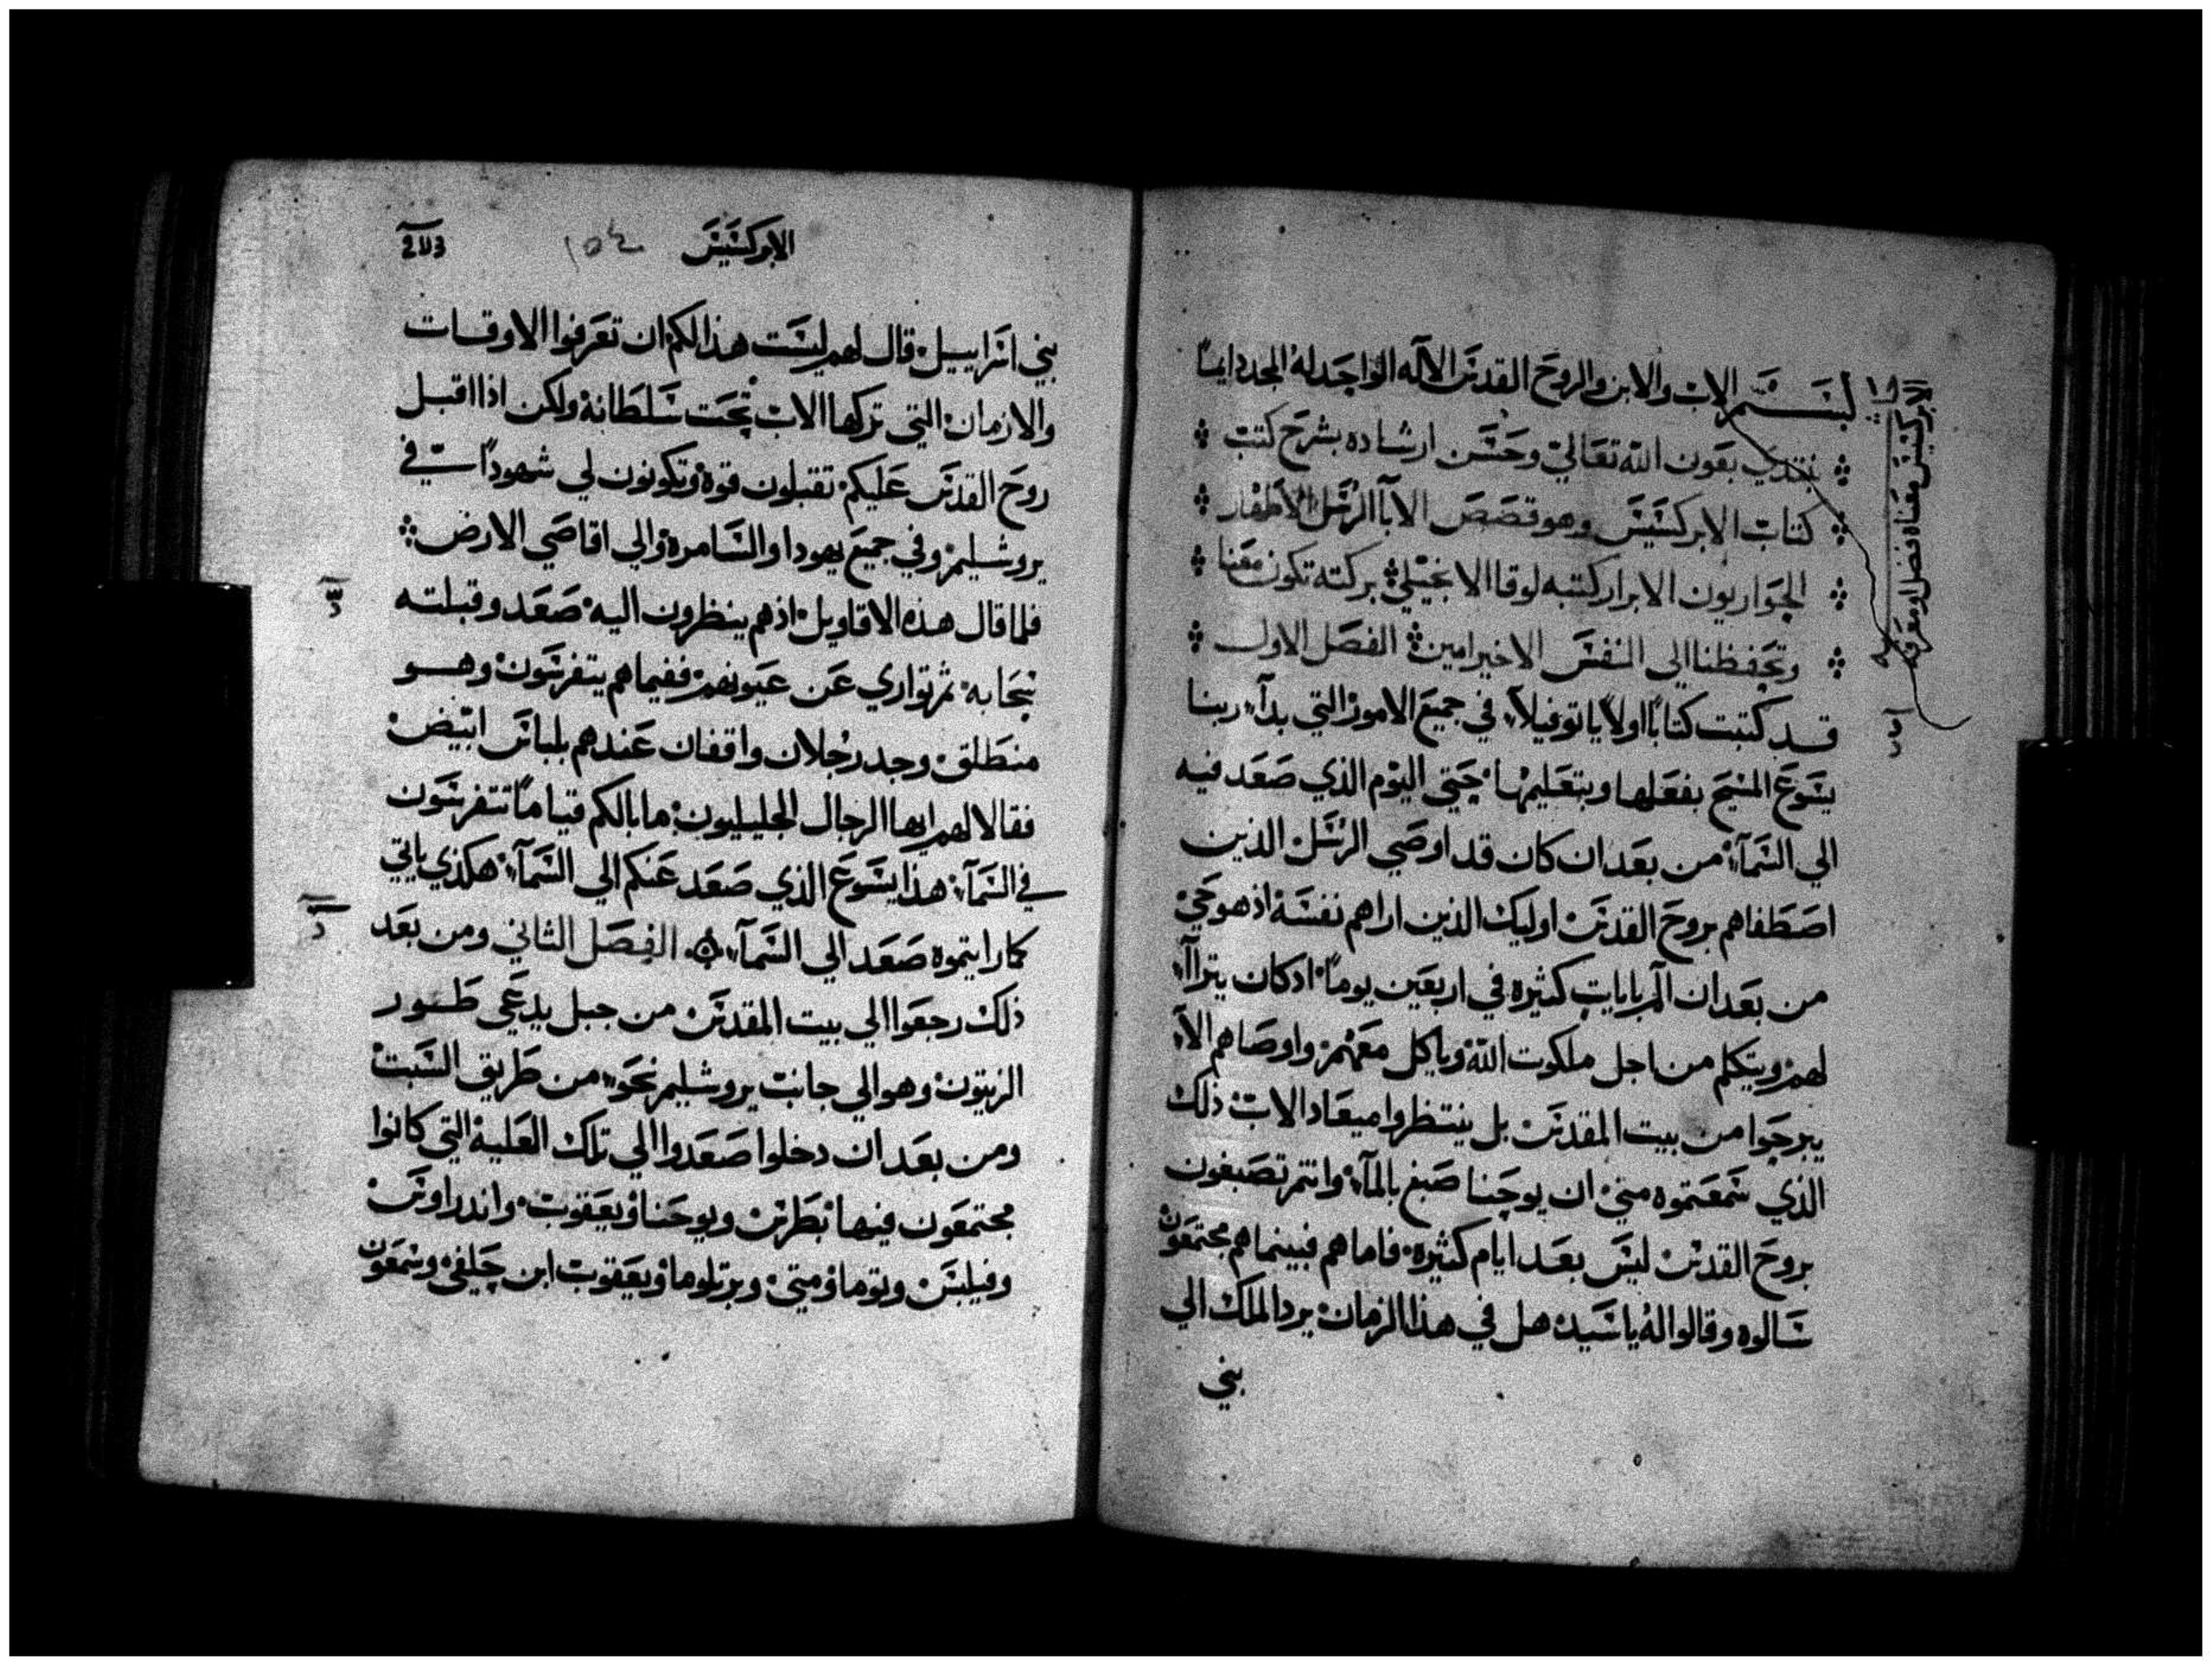 بسم الاب والابن والروح القدس الاله الواحد له المجد دايماً
نبتدي بعون الله تعالي وحسن ارشاده بشرح كتب
كتاب الابركسيس وهو قصص الابآ الرسل الاطهار
الحواريون الابرار كتبه لوقا الانجيلي بركته تكون معنا
وتحفظنا الي النفس الاخير امين الفصل الاول
قد كتبت كتاباً اولاً ياتوفيلاً في جميع الامور التي بدآ ربنا
يسوع المسيح بفعلها وبتعليمها حتي اليوم الذي صعد فيه
الي السمآ من بعد ان كان قد اوصي الرسل الذين
اصطفاهم بروح القدس اوليك الذين اراهم نفسه اذ هو حي
من بعد ان الم بايات كثيره في اربعين يوماً اذ كان يترآآ
لهم ويتكلم من اجل ملكوت الله وياكل معهم واوصاهم الا
يبرحوا من بيت المقدس بل ينتظروا ميعاد الاب ذلك
الذي سمعتموه مني ان يوحنا صبغ بالمآ وانتم تصبغون
بروح القدس ليس بعد ايام كثيره فاما هم فبينما هم مجتمعون
سالوه وقالوا له ياسيد هل في هذا الزمان يرد الملك الي
بني
الابركسيس معناه فصل او معرفه
الابركسيس ١٥٤
بني اسراييل قال لهم ليست هذا لكم ان تعرفوا الاوقات
والازمان التي تركها الاب تحت سلطانه ولكن اذا اقبل
روح القدس عليكم تقبلون قوة وتكونون لي شهوداً في
يروشليم وفي جميع يهودا والسامرة والي اقاصي الارض
فلما قال هذه الاقاويل اذ هم ينظرون اليه صعد وقبلته
سحابه ثم تواري عن عيونهم ففيما هم يتفرسون وهو
منطلق وجد رجلان واقفان عندهم بلباس ابيض
فقالا لهم ايها الرجال الجليليون ما بالكم قياماً تتفرسون
في السمآ هذا يسوع الذي صعد عنكم الي السمآ هكذي ياتي
كما رايتموه صعد الي السمآ الفصل الثاني ومن بعد
ذلك رجعوا الي بيت المقدس من جبل يدعي طور
الزيتون وهو الي جانب يروشليم نحو من طريق السبت
ومن بعد ان دخلوا صعدوا الي تلك العلية التي كانوا
مجتمعون فيها بطرس ويوحنا ويعقوب واندراوس
وفيلبس وتوما ومتي وبرتلوما ويعقوب ابن حلفي وسمعون